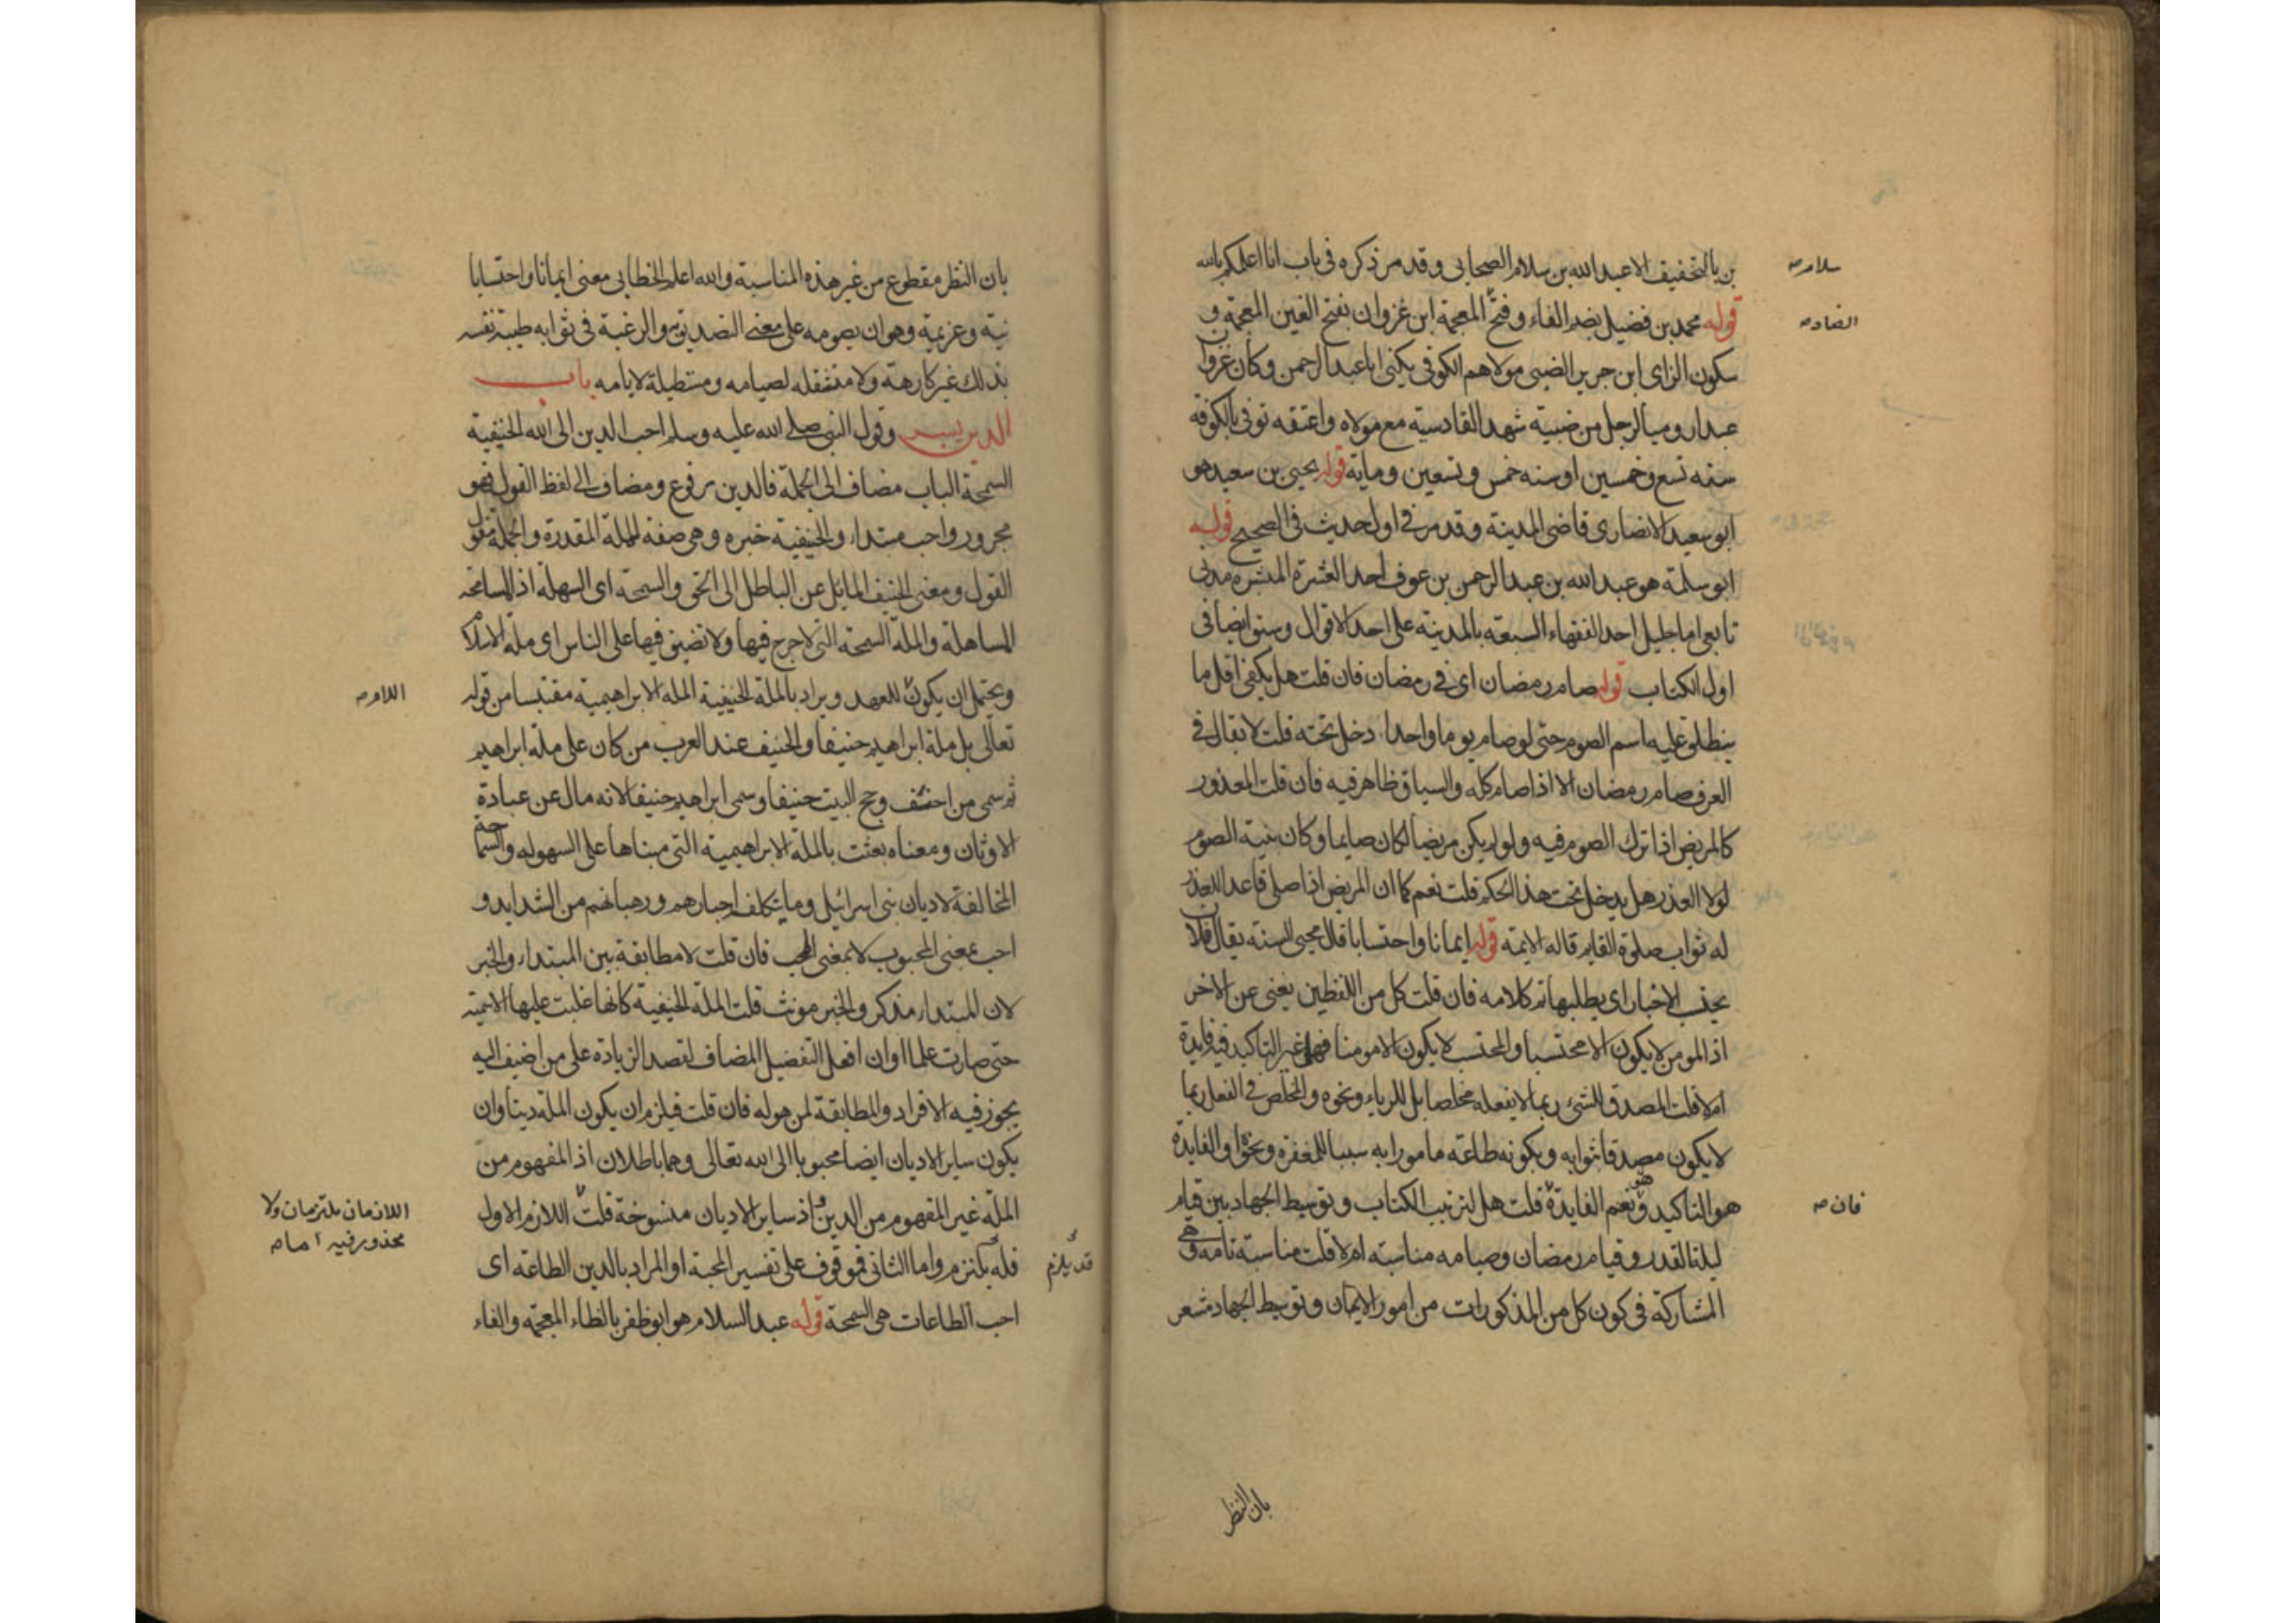 بن بالتخفيف الا عبد الله بن سلام الصحابى وقد مر ذكره فى باب انا اعلمكم بالله
سلام صح
قوله محمد بن فضيل بضم الفاء وفتح المعجمة ابن غزوان بفتح الغين المعجمة و
الضاد صح
سكون الزاى ابن جرير الضبى مولاهم الكوفى يكنى ابا عبد الرحمن وكان غزوان
عبدا روميا لرجل من ضبية شهد القادسية مع مولاه واعتقه توفى بالكوفة
سنه تسع وخمسين او سنه خمس وتسعين وماية قوله يحيى بن سعيد هو
ابو سعيد الانصارى قاضى المدينة وقد مر فى اول حديث فى الصحيح قوله
ابو سلمة هو عبد الله بن عبد الرحمن بن عوف احد العشرة المبشره مدنى
تابعى امام جليل احد الفقهاء السبعه بالمدينة على احد الاقوال وسبق ايضا فى
اول الكتاب قوله صام رمضان اى فى رمضان فان قلت هل يكفى اقل ما
ينطلق عليه اسم الصوم حتى لو صام يوما واحدا دخل تحته قلت لا يقال فى
العرف صام رمضان الا اذا صام كله والسياق ظاهر فيه فان قلت المعذور
كالمريض اذا ترك الصوم فيه ولو لم يكن مريضا لكان صايما وكان نيته الصوم
لولا العذر هل يدخل تحت هذا الحكم قلت نعم كما ان المريض اذا صلى قاعدا لعذر
له ثواب صلوة القايم قاله الايمة قوله ايمانا واحتسابا قال محيى السنه يقال فلان
يحتسب الاخبار اى يطلبها تم كلامه فان قلت كل من اللفظين يغنى عن الاخر
اذ المومن لا يكون الا محتسبا والمحتسب لا يكون الا مومنا فهل غير التاكيد فيه فايدة
ام لا قلت المصدق للشئ ربما لا يفعله مخلصا بل للرياء ونحوه والمخلص فى الفعل ربما
لا يكون مصدقا بثوابه وبكونه طاعه مامورا به سببا للمغفرة ونحوه او الفايدة
هو التاكيد ونعم الفايدة هى قلت هل لترتيب الكتاب وتوسيط الجهاد بين قيام
فان صح
ليلة القدر وقيام رمضان وصيامه مناسبة ام لا قلت مناسبة تامه وهى
المشاركة فى كون كل من المذكورات من امور الايمان وتوسيط الجهاد مشعر
بان النظر
بان النظر مقطوع من غير هذه المناسبة والله اعلم الخطابى معنى ايمانا واحتسابا
نية وعزيمة وهو ان يصومه على معنى التصديق به والرغبة فى ثوابه طيبة نفسه
بذلك غير كارهة ولا مستثقله لصيامه ومستطيلة لايامه باب
الدين يسر وقول النبى صلى الله عليه وسلم احب الدين الى الله الحنيفية
السمحة الباب مضاف الى الجملة فالدين مرفوع ومضاف الى لفظ القول فهو
مجرور واحب مبتداء والحنيفية خبره وهى صفة للملة المقدرة والجملة مقول
القول ومعنى الحنيف المايل عن الباطل الى الحق والسمحة اى السهلة اذ المسامحة
المساهلة والملة السمحة التى لا حرج فيها ولا تضييق فيها على الناس اى ملة الاسلام
ويحتمل ان يكون للعهد ويراد بالملة الحنيفية المله الابراهيمية مقتبسا من قوله
اللام صح
تعالى بل ملة ابراهيم حنيفا والحنيف عند العرب من كان على ملة ابراهيم
ثم سمى من اختتن وحج البيت حنيفا وسمى ابراهيم حنيفا لانه مال عن عبادة
الاوثان ومعناه بعثت بالملة الابراهيمية التى مبناها على السهوله والسماحة
المخالفة لاديان بنى اسرائيل وما يتكلفه احبارهم ورهبانهم من الشدايد و
احب بمعنى المحبوب لا بمعنى المحب فان قلت لا مطابقة بين المبتداء والخبر
لان المبتداء مذكر والخبر مونث قلت الملة الحنيفية كانها غلبت عليها الاسمية
حتى صارت علما او ان افعل التفضيل المضاف لقصد الزيادة على من اضيف اليه
يجوز فيه الافراد والمطابقة لمن هو له فان قلت فيلزم ان يكون الملة دينا وان
يكون ساير الاديان ايضا محبوبا الى الله تعالى وهما باطلان اذ المفهوم من
الملة غير المفهوم من الدين واذ ساير الاديان منسوخة قلت اللازم الاول
اللازمان ملتزمان ولا
محذور فيه اما صح
فله يلتزم واما الثانى فموقوف على تفسير المحبة او المراد بالدين الطاعه اى
قد يلزم
احب الطاعات هى السمحة قوله عبد السلام هو ابو ظفر بالظاء المعجمة والفاء